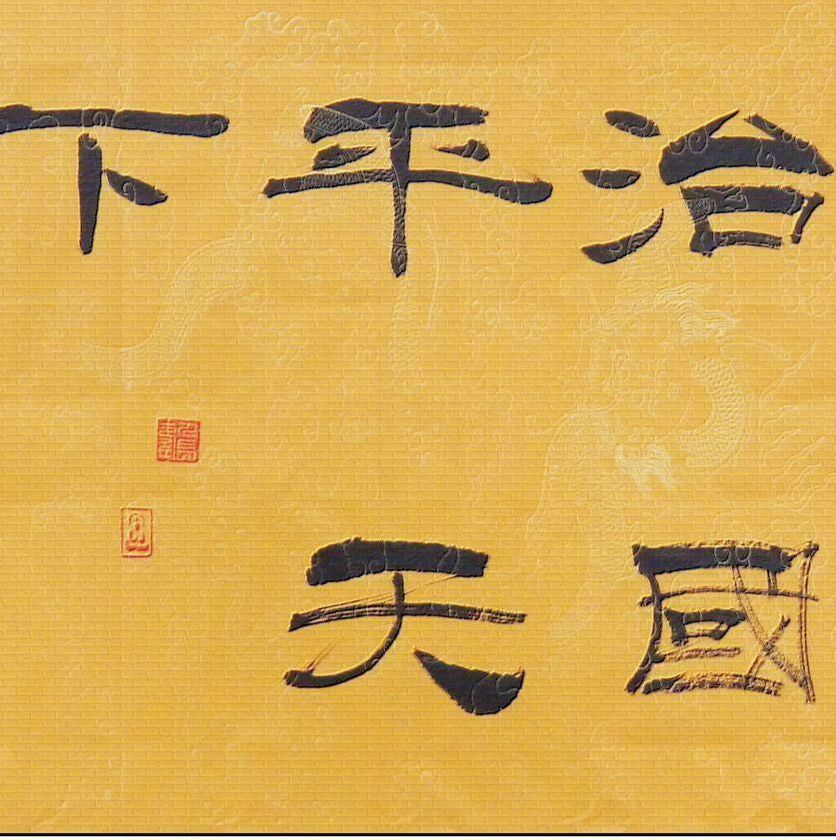 治國
平天
下